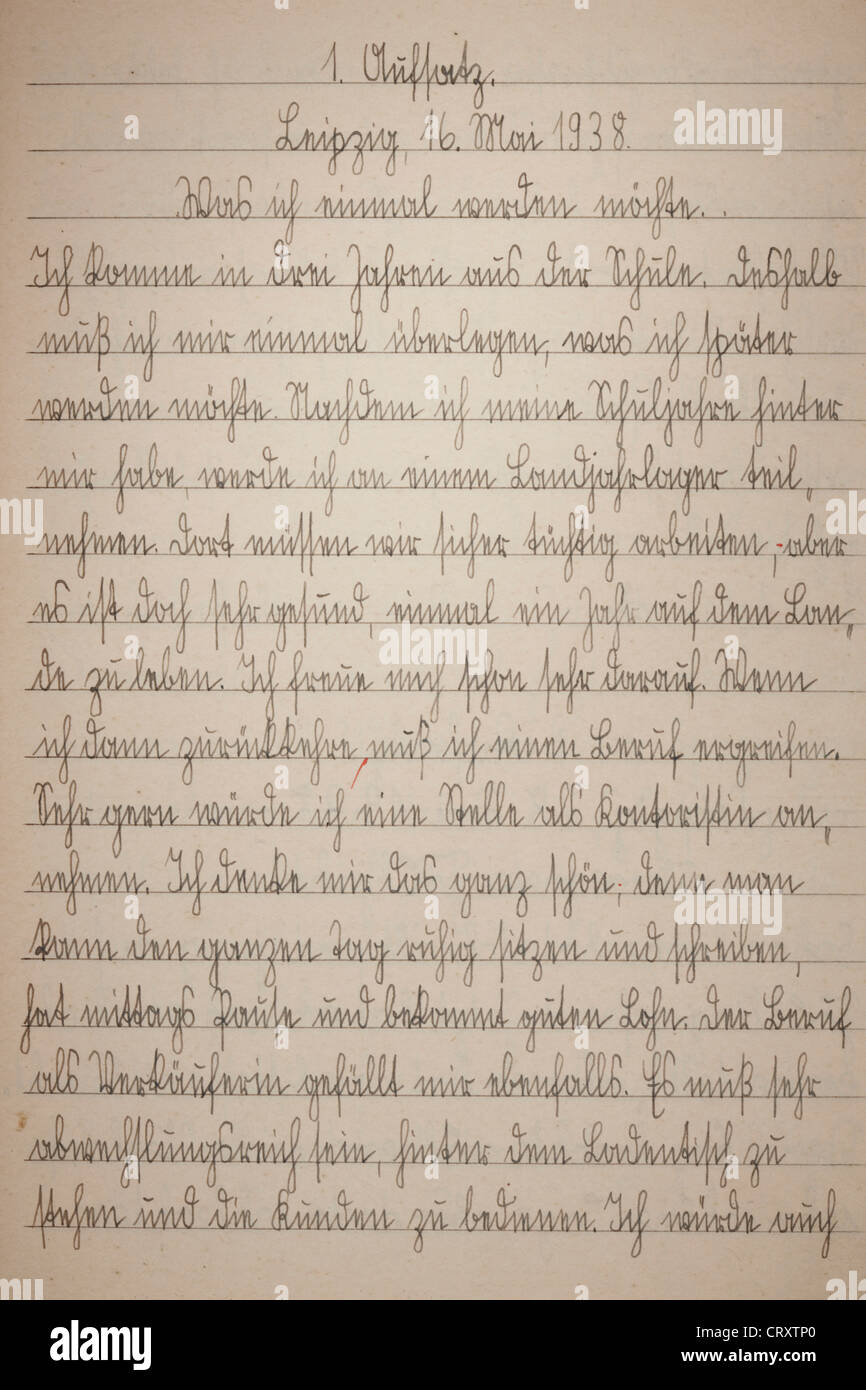 1. Aufsatz.
Leipzig, 16. Mai 1938.
Was ich einmal werden möchte.
Ich komme in drei Jahren aus der Schule. Deshalb
muß ich mir einmal überlegen, was ich später
werden möchte. Nachdem ich meine Schuljahre hinter
mir habe, werde ich an einem Landjahrlager teil„
nehmen. Dort müssen wir sicher tüchtig arbeiten, aber
es ist doch sehr gesund, einmal ein Jahr auf dem Lan„
de zu leben. Ich freue mich schon sehr darauf. Wenn
ich dann zurückkehre muß ich einen Beruf ergreifen.
Sehr gern würde ich eine Stelle als Kontoristin an„
nehmen. Ich denke mir das ganz schön; denn man
kann den ganzen Tag ruhig sitzen und schreiben,
hat mittags Pause und bekommt guten Lohn. Der Beruf
als Verkäuferin gefällt mir ebenfalls. Es muß sehr
abwechslungsreich sein, hinter dem Ladentisch zu
stehen und die Kunden zu bedienen. Ich würde auch
a alamy
alamy stock photo
Image ID: CRXTP0
www.alamy.com